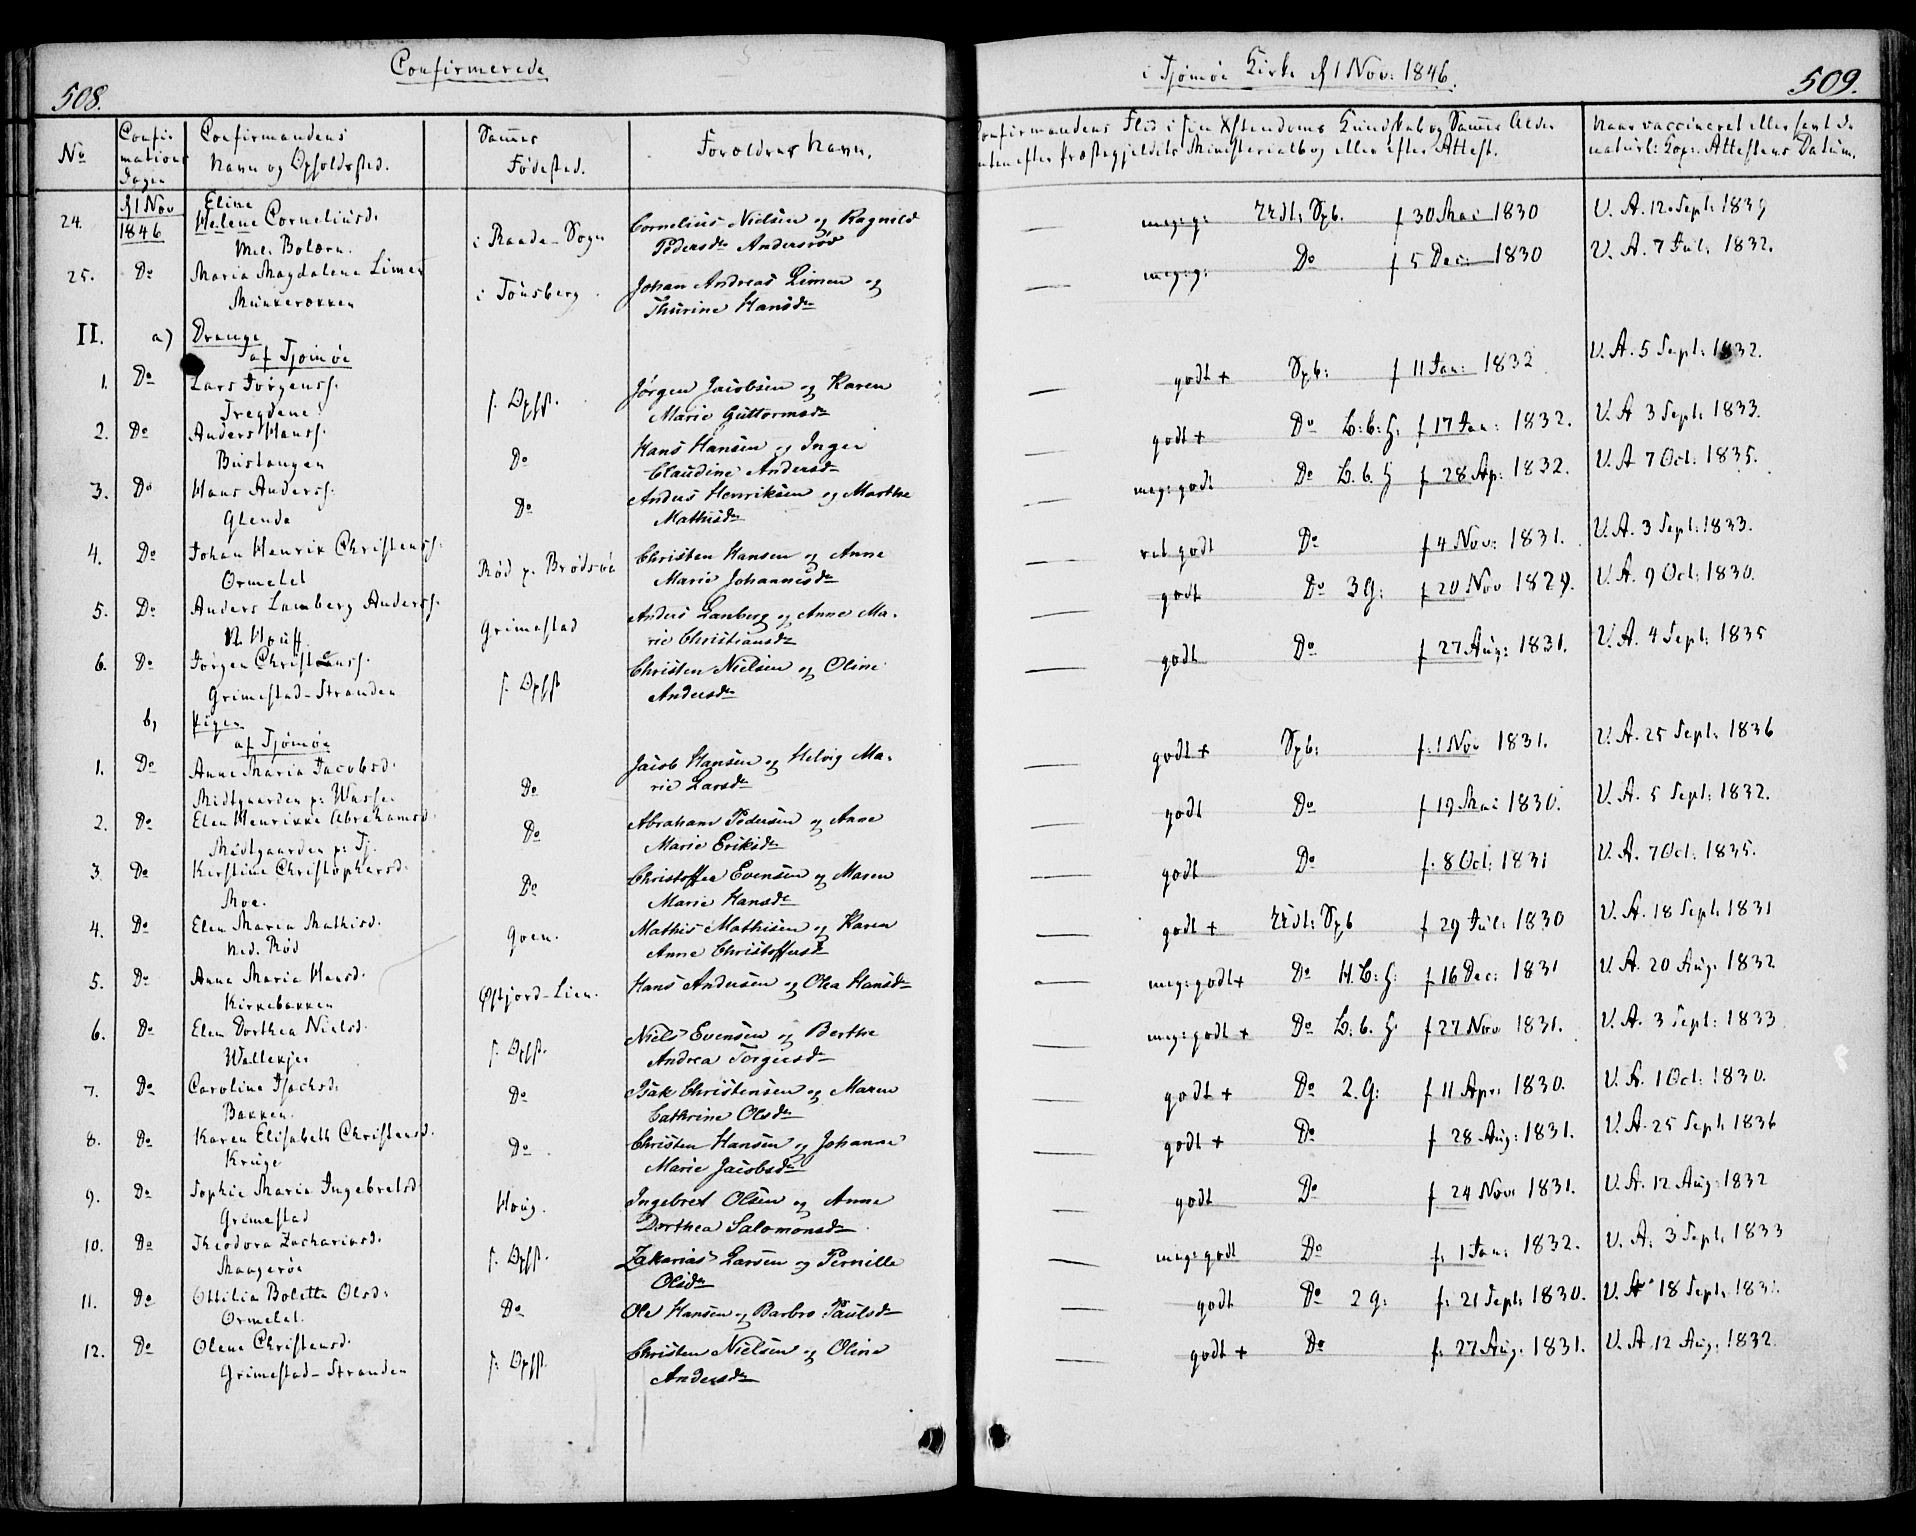 508.
Confirmerede
No
Confir
mations
Dagen
Confirmandens
Navn og Opholdssted.
Sammes
Fødested.
Forældres Navn.
24.
d 1 Nov
1846
Eline
Helene Corneliusd.
Mel. Bolærn.
i Raade-Sogn
Cornelius Nielsen og Ragnild
Pedersdr Andersrød
25. Do Maria Magdalena Limen
Munkerekken
i Tønsberg.
Johan Andreas Limen og
Thurine Hansdr
II. a) Drenge
af Tjømøe
1. Do Lars Jørgenss.
Tregdene.
s. Opsst.
Jørgen Jacobsen og Karen
Marie Guttormsdr
2. Do Anders Hanss.
Bustangen
Do
Hans Hansen og Inger
Claudine Andersdr
3. Do Hans Anderss.
Glenda
Do
Anders Henriksen og Marthe
Mathisdr
4. Do Johan Henrik Christenss.
Ormelet
Rød p. Brødsøe
Christen Hansen og Anne
Marie Johannesdr
5. Do Anders Lamberg Anderss.
N. Houff
Grimestad
Anders Lanberg og Anne Ma-
rie Christiansdr
6. Do Jørgen Christenss.
Grimestad-Stranden
s. Opsst
Christen Nielsen og Oline
Andersdr
b, Piger
af Tjømøe
1. Do Anne Maria Jacobsd.
Midtgaarden p: Wasser
Do
Jacob Hansen og Helvig Ma-
rie Larsdr
2. Do Elen Henrikke Abrahamsd.
Midtgaarden p: Tj.
Do
Abraham Pedersen og Anne
Marie Eriksdr
3. Do Kirstine Christophersd.
Moe.
Do
Christoffer Evensen og Maren
Marie Hansdr
4. Do Elen Maria Mathisd.
Ned. Rød
Goen.
Mathis Mathisen og Karen
Anne Christoffersdr
5. Do Anne Maria Hansd.
Kirkebakken
Østjord-Lien.
Hans Andersen og Olea Hansdr
6. Do Elen Dorthea Nielsd.
Wallekjer
s. Opsst.
Niels Evensen og Berthe
Andrea Torgersdr
7. Do Caroline Isachsd.
Bakken.
Do
Isak Christensen og Maren
Cathrine Olsdr
8. Do Karen Elisabeth Christensd.
Kruge
Do.
Christen Hansen og Johanne
Marie Jacobsdr
9. Do Sophie Maria Ingebretsd.
Grimestad
Houg.
Ingebret Olsen og Anne
Dorthea Salomonsdr
10. Do Theodora Zachariasd.
Maagerøe
s. Opsst.
Zakarias Larsen og Pernille
Olsdr
11. Do Ottilia Bolette Olsd.
Ormelet.
Do
Ole Hansen og Barbro Paulsdr
12. Do Olene Christensd.
Grimestad-Stranden
s. Opsst.
Christen Nielsen og Oline
Andersdr
i Tjømøe Kirke d 1 Nov: 1846.
509.
Confirmandens Flid i sin Xstendoms Kundskab og Sammes Alder
enten efter Præstegjeldets Ministerialbog eller efter Attest.
Naar vaccineret eller havt de
naturl: Kopr. Attestens Datum.
meg: g: Spb. f 30 Mai 1830 V. A. 12 Sept. 1839
meg: g: Do f 5 Dec: 1830 V. A. 7 Jul. 1832.
godt + Spb: f 11 Jan: 1832 V. A. 5 Sept: 1832.
godt + Do B: b: H: f 17 Jan: 1832. V. A 3 Sept: 1833.
meg: godt Do B. b. H f 28 Ap: 1832. V. A 7 Oct: 1835.
ret godt Do f 4 Nov: 1831. V. A. 3 Sept: 1833.
godt Do 3 G: f 20 Nov 1829. V. A. 9 Oct: 1830.
godt Do f 27 Aug: 1831. V. A. 4 Sept: 1835
godt + Spb: f. 1 Nov 1831. V. A. 25 Sept. 1836
godt Do f 19 Mai 1830. V. A. 5 Sept: 1832.
godt Do f. 8 Oct: 1831 V. A. 7 Oct: 1835.
godt + Spb f 29 Jul: 1830 V. A. 18 Sept. 1831
meg: godt + Do H. B: H: f 16 Dec: 1831 V. A. 20 Aug. 1832
meg: godt + Do B: b. H. f 27 Nov 1831. V. A. 3 Sept: 1833
godt + Do 2. G: f 11 Apr: 1830. V. A. 1 Oct: 1830.
godt + Do f 28 Aug: 1831. V. A. 25 Sept. 1836
godt Do f 24 Nov: 1831. V. A. 12 Aug: 1832
meg: godt Do f: 1 Jan: 1832. V. A: 3 Sept. 1833
godt Do 2 g: f: 21 Sept: 1830. V. A 18 Sept. 1831.
godt + Do f: 27 Aug. 1831. V. A. 12 Aug: 1832.